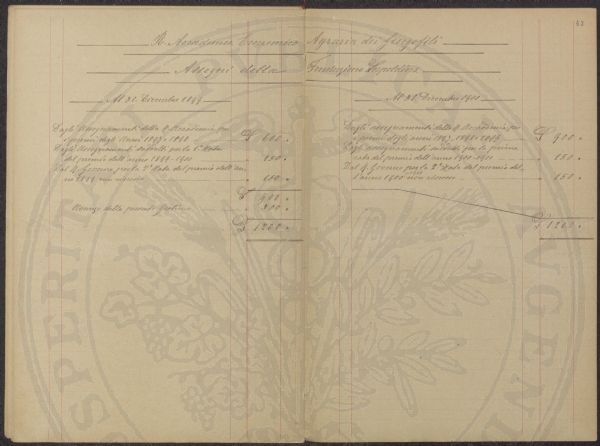 R. Accademia Economico Agraria dei Georgofili
Assegni della Fondazione
Al 31 Dicembre 1899
Dagli Assegnamenti della R. Accademia per
i premi degli Anni 1897 e 1898 £ 600.
Dagli Assegnamenti suddetti per la 1ª Rata
del premio dell'anno 1899-1900 150.
Dal per la 2ª Rata del premio dell'an-
no 1899 non 150.
£ 900.
della presente Gestione 300.
£ 1200.
62
Al 31 Dicembre 1900
Dagli assegnamenti della R. Accademia per
i premi degli anni 1897, 1898 e 1899 £ 900.
Dagli assegnamenti suddetti per la prima
rata del premio dell'anno 1900-1901 150.
Dal per la 2ª Rata del premio del-
l'anno 1900 non 150.
£ 1200.
PROSPERITATI AUGENDAE